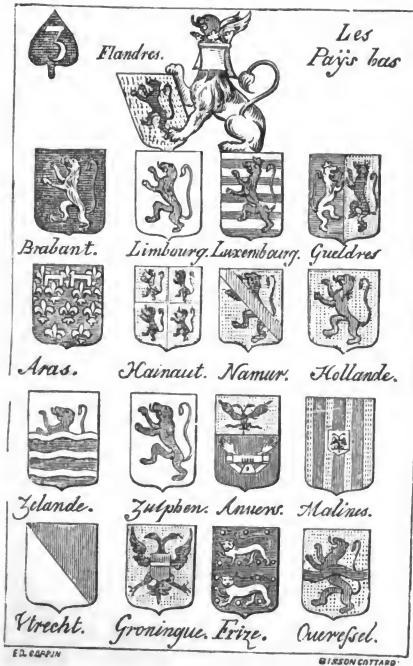 3
Flandres.
Les
Païs bas
Brabant. Limbourg. Luxembourg. Gueldres
Aras. Hainaut. Namur. Hollande.
Zelande. Zutphen. Anuers. Malines.
Vtrecht. Groningue. Frize. Oueressel.
ED. COPPIN BISSON COTTARD